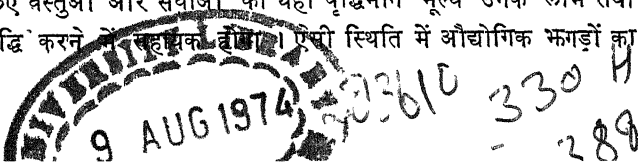 वस्तुओं और सेवाओं का यही वृद्धिमान मूल्य उनके लाभ तथा
द्धि करने में सहायक होगा । ऐसी स्थिति में औद्योगिक झगड़ों का
9 AUG 1974
330 H
288